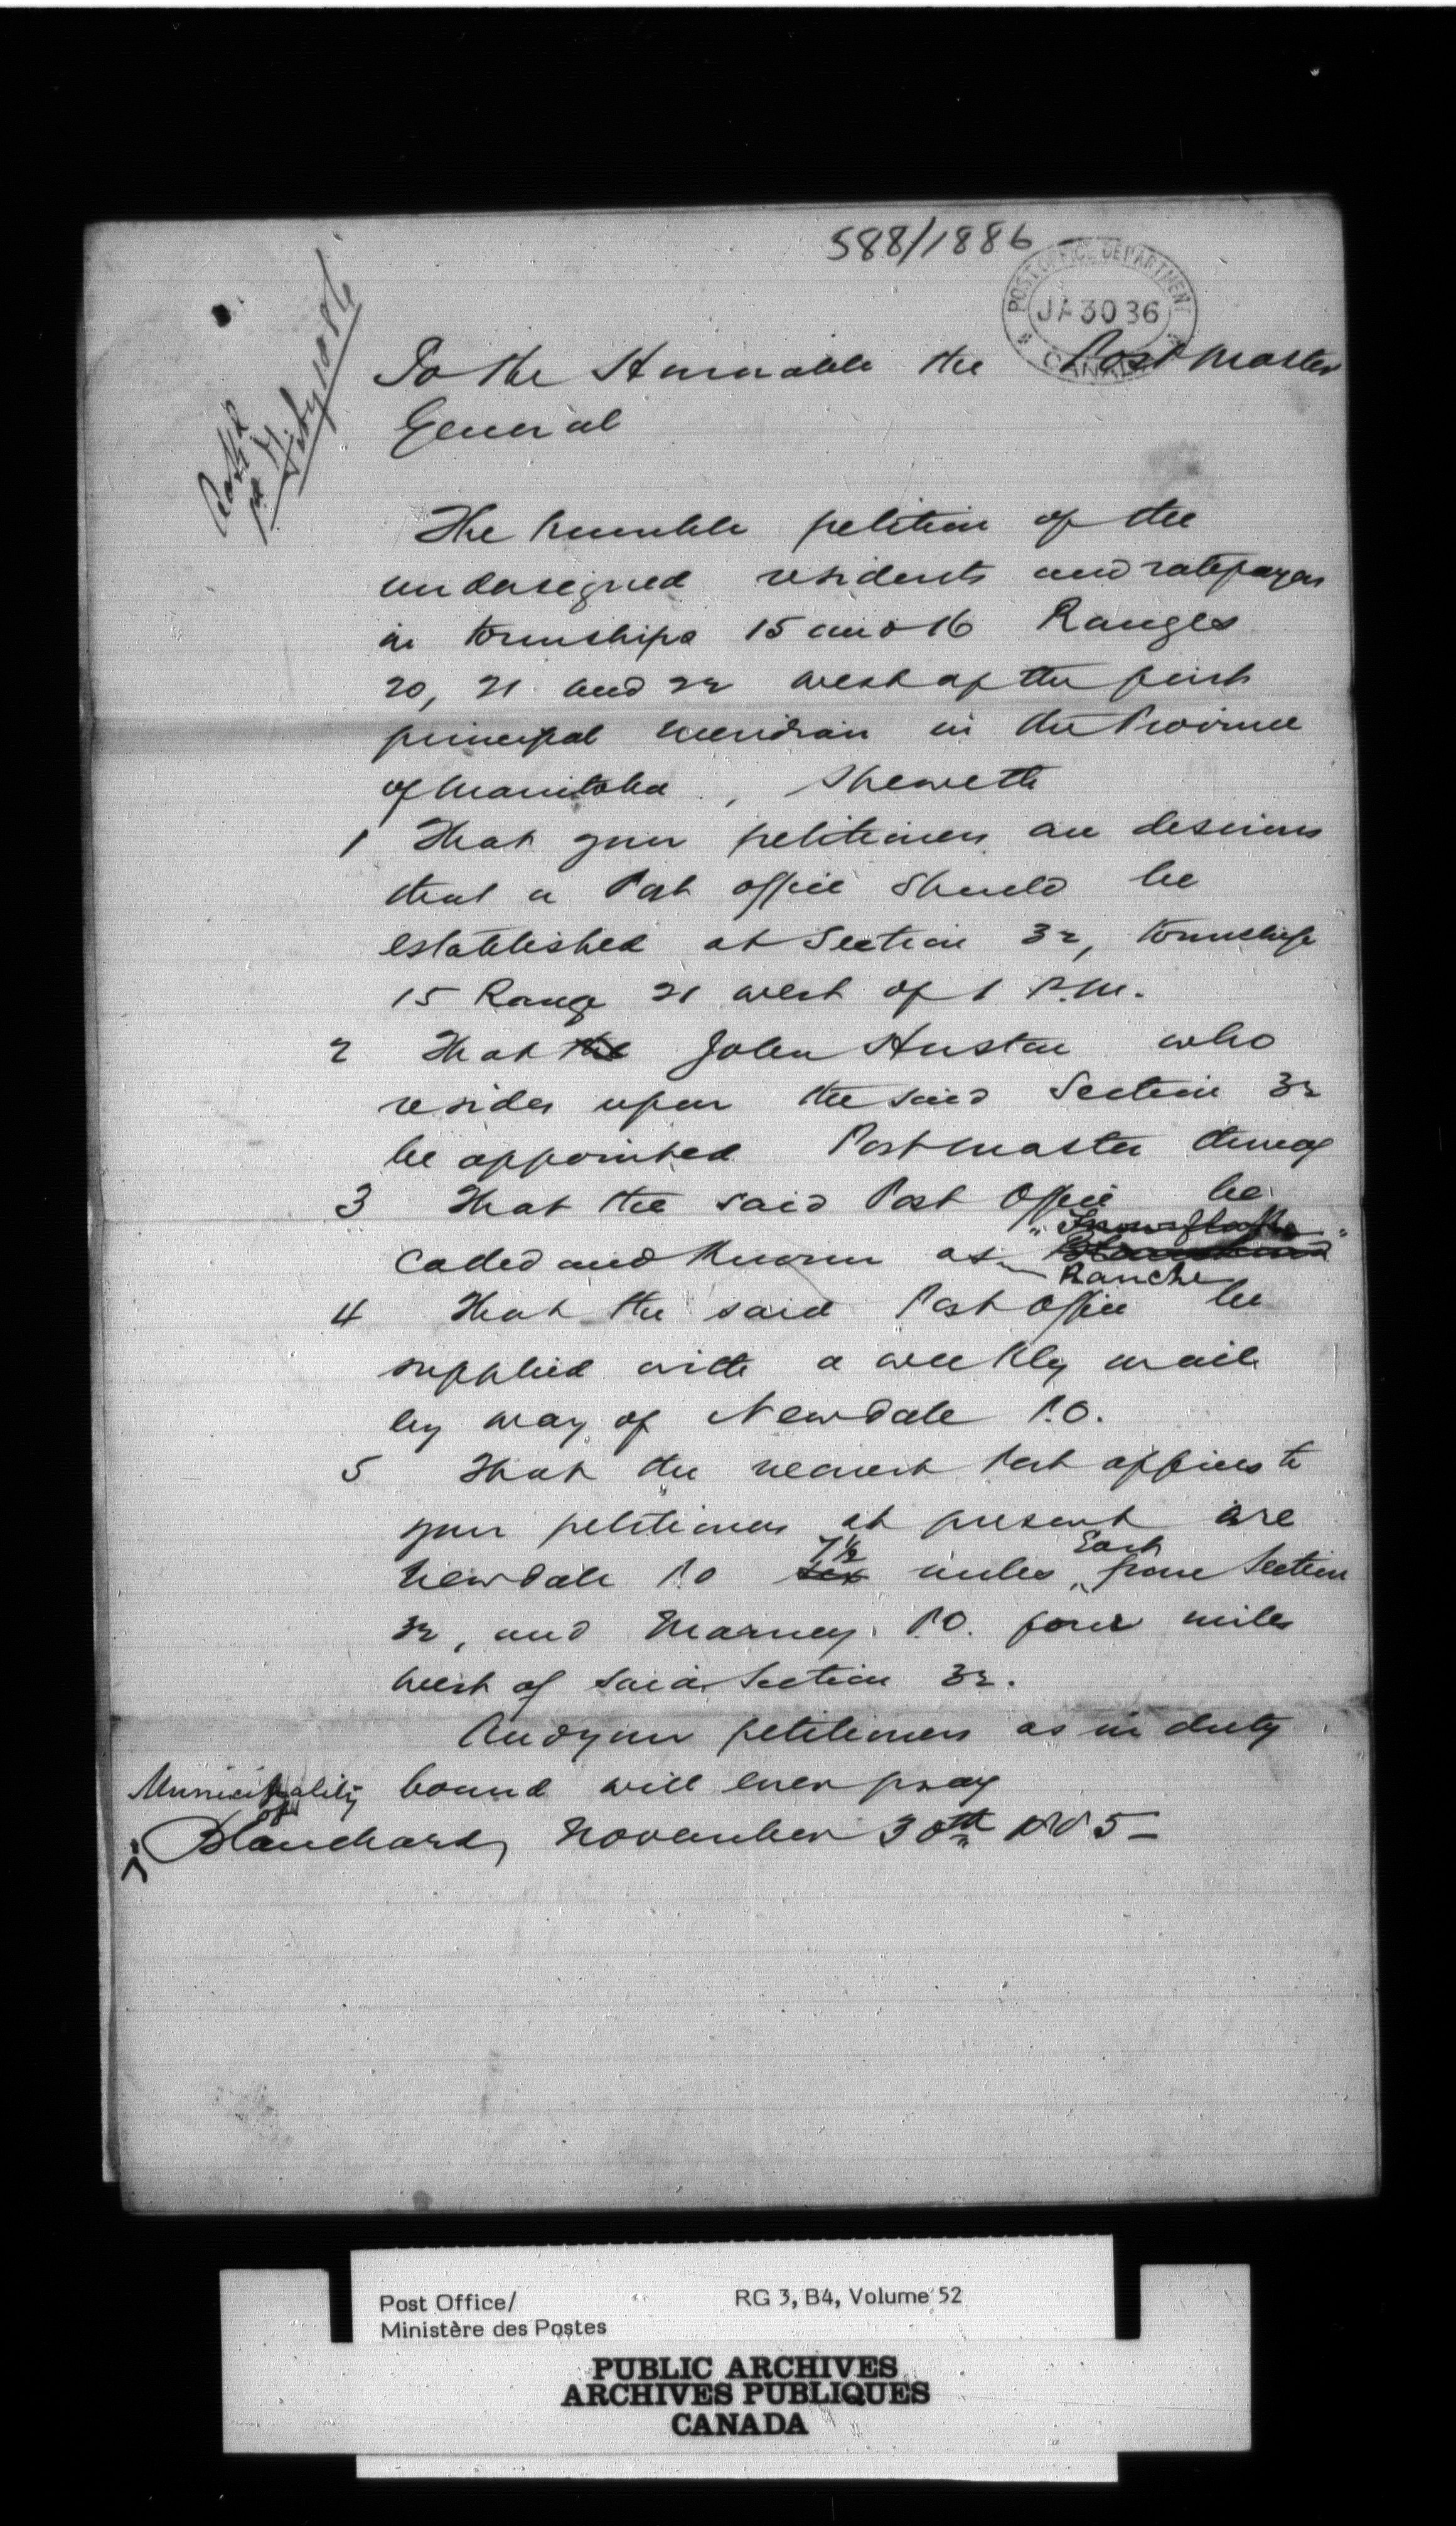 588/1886
POST OFFICE DEPARTMENT
JA 30 86
CANADA
To the Honorable the Post Master
General
The humble petition of the
undersigned residents and ratepayers
in townships 15 and 16 Ranges
20, 21 and 22 west of the first
principal meridian in the Province
of Manitoba, Sheweth
1 That your petitioners are desirous
that a Post office should be
established at Section 32, township
15 Range 21 west of 1 P.M.
2 That the John Huston who
resides upon the said Section 32
be appointed Postmaster thereof
3 That the said Post Office be
"Snowflake"
called and known as
Ranche
4 That the said Post Office be
supplied with a weekly mail
by way of Newdale P.O.
5 That the nearest Post offices to
your petitioners at present are
7½ East
Newdale P.O six miles " from Section
32, and Marney P.O. four miles
west of said Section 32.
And your petitioners as in duty
Municipality bound will ever pray
of
Blanchard, November 30th 1885
Post Office/
Ministère des Postes
RG 3, B4, Volume 52
PUBLIC ARCHIVES
ARCHIVES PUBLIQUES
CANADA